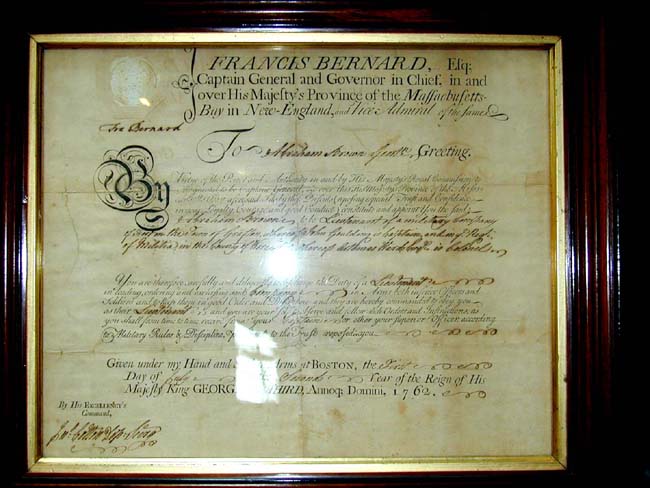 FRANCIS BERNARD, Esq;
Captain General and Governor in Chief, in and
over His Majesty's Province of the Massachusetts-
Bay in New-England, and Vice Admiral of the same.
Fra Bernard
To Abraham Brown Gentn. Greeting.
By Virtue of the Power and Authority, in and by His Majesty's Royal Commission to
me granted to be Captain General, &c. over this His Majesty's Province of the Massa-
aforesaid, I do (by these Presents) reposing especial Trust and Confidence
in your Loyalty, Courage and good Conduct, constitute and appoint You the said
Abraham Brown to be Lieutenant of a military Company
of foot in the Town of whereof John is Captain, and in Regt.
of Militia in the County of whereof is Colonel
You are therefore carefully and diligently to discharge the Duty of a Lieutenant
in leading, ordering and exercising said Company in Arms, both inferior Officers and
Soldiers, and to keep them in good Order and Discipline; and they are hereby commanded to obey you
as their Lieutenant and you are your self to observe and follow such Orders and Instructions, as
you shall from time to time receive from your Captain or other your superior Officers according
to Military Rules & Discipline, to the Trust reposed in you.
Given under my Hand and Arms at BOSTON, the First
Day of July Second Year of the Reign of His
Majesty King GEORGE THIRD, Annoq; Domini, 1762.
By His EXCELLENCY's
Command,